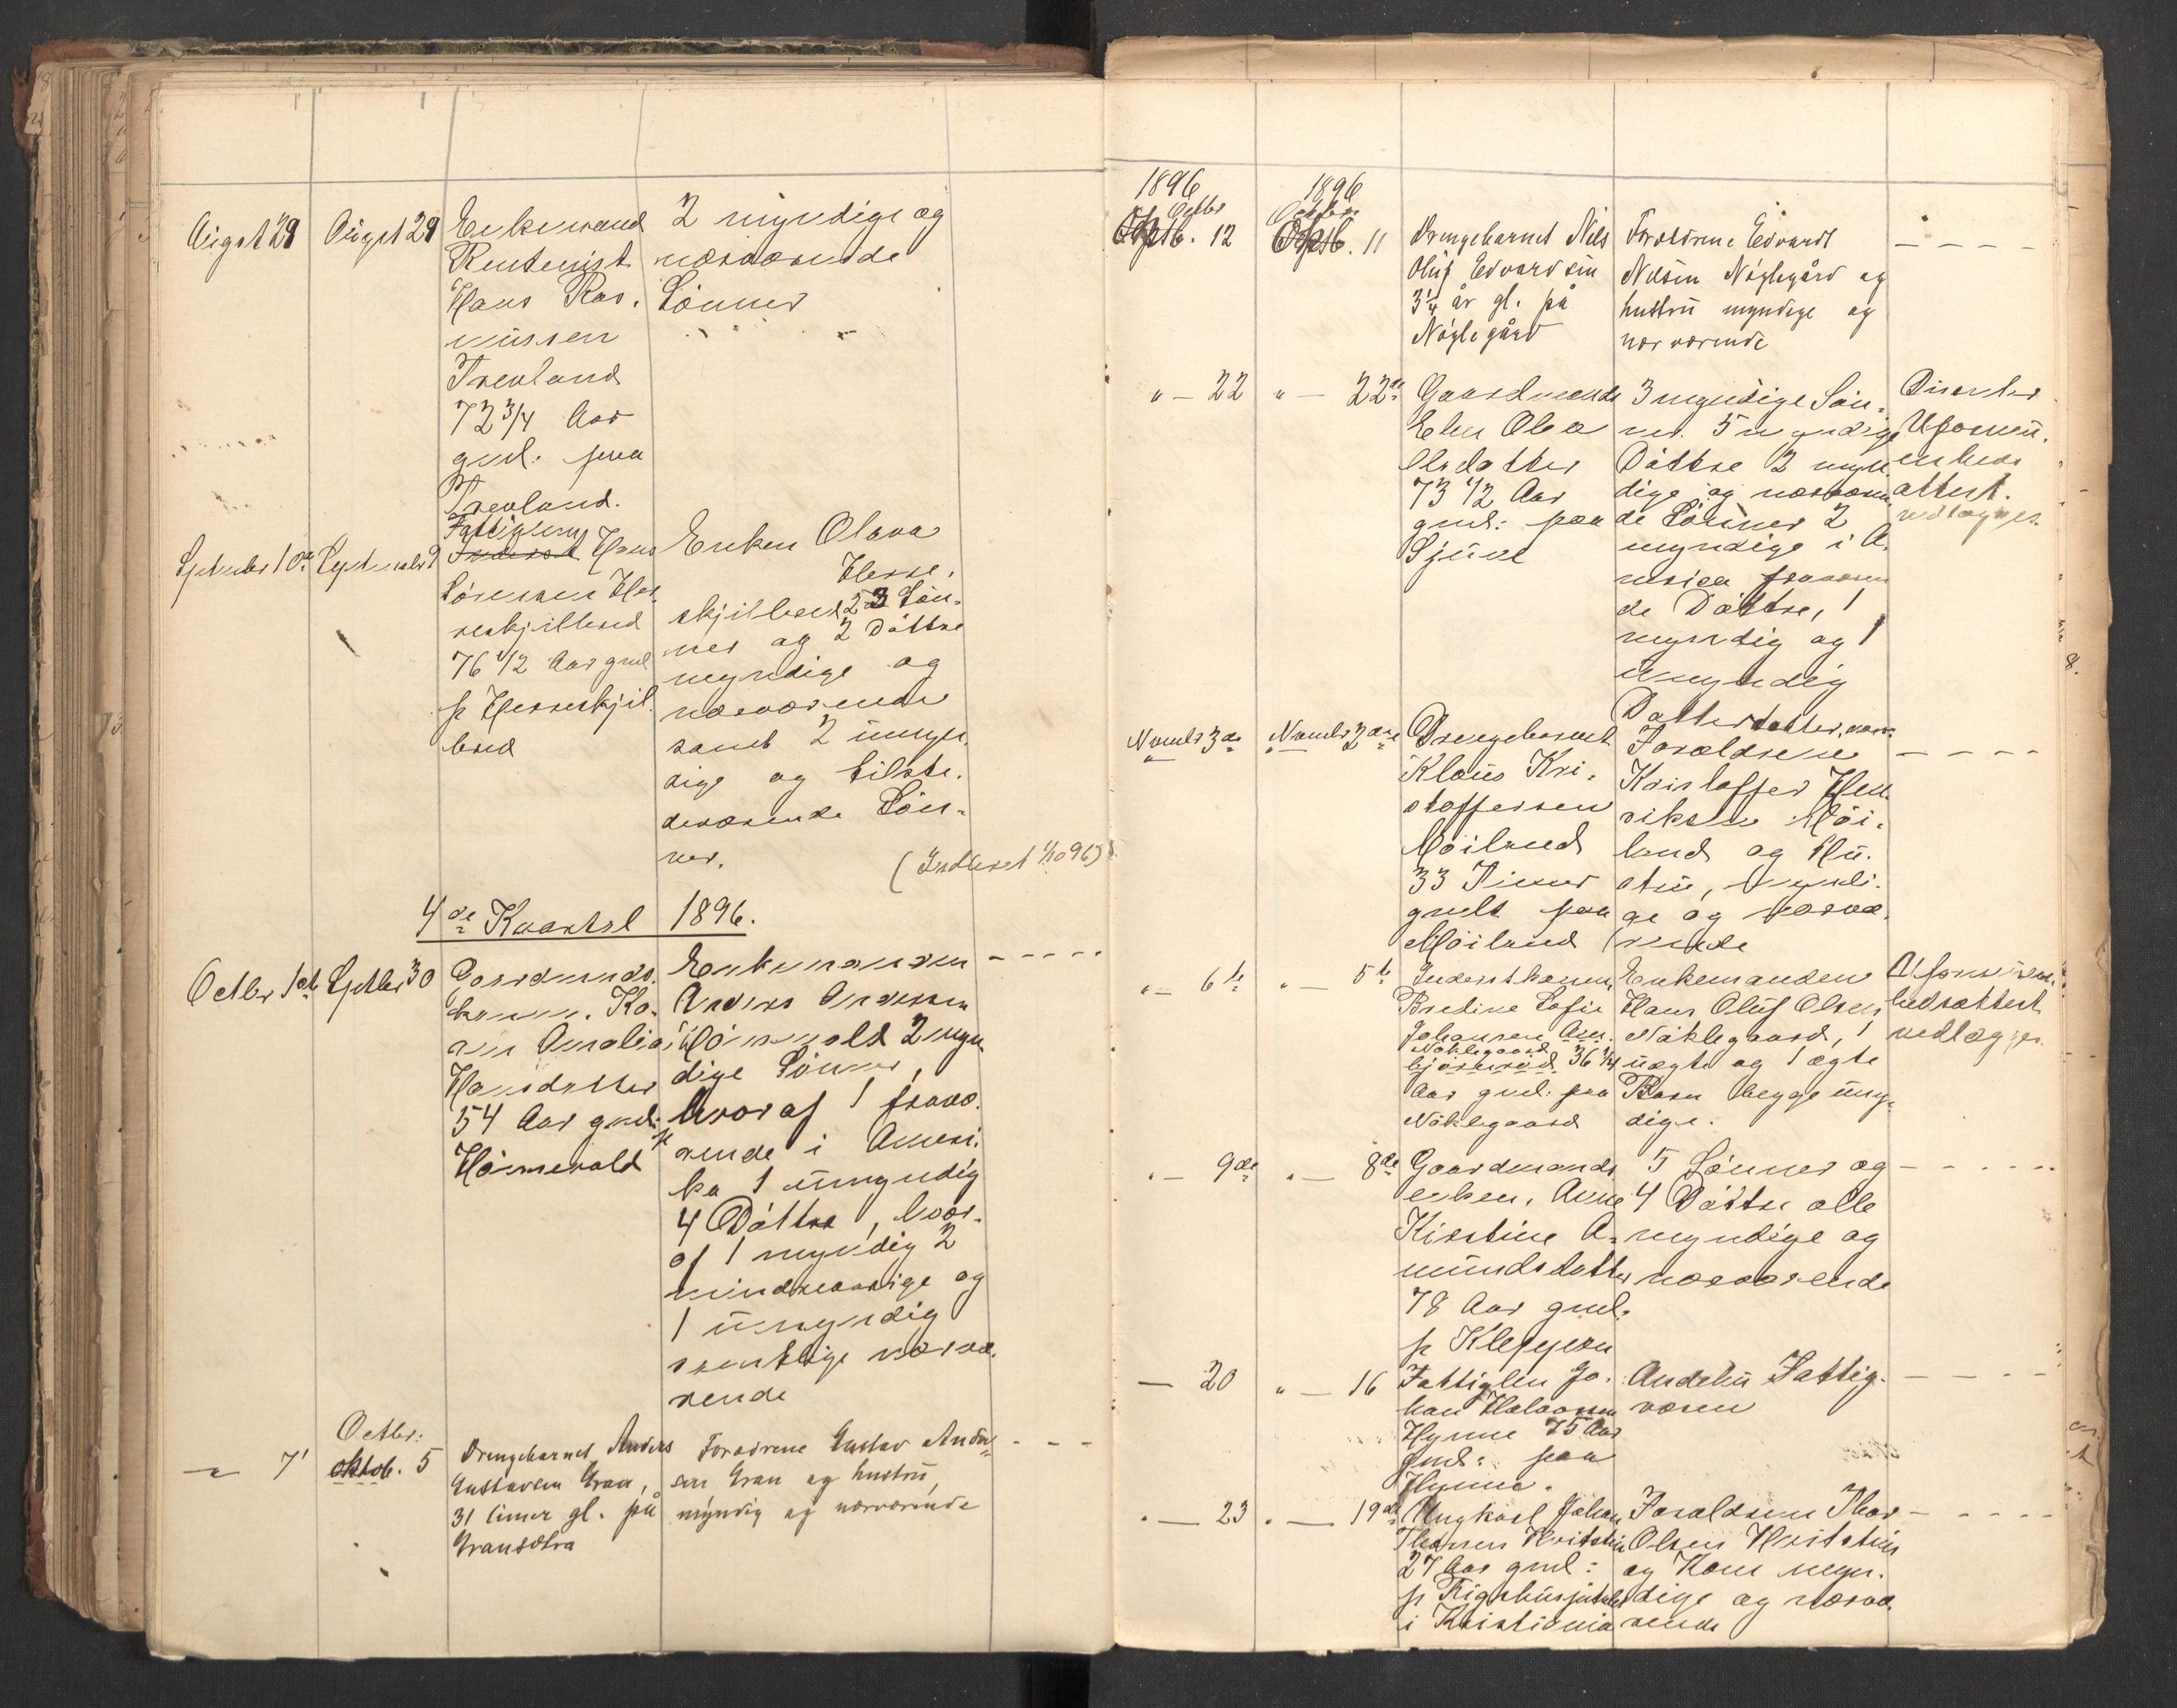 August 29
August 29
Enkemand
Rentenist
Hans Ras-
mussen
Treoland
72 3/4 Aar
gml: paa
Treoland.
2 myndige og
nærværende
Sønner
September 10de
September 9
Fattiglem
Inderst Hans
Sørensen Hes-
seskjillerød
76 1/2 Aar gml
p
Enken Olava
Hesse-
skjillerød 3 Søn-
ner og 2 Døttre
myndige og
nærværende
samt 2 umyn-
dige og tilste-
deværende Søn-
ner.
(Indberet 1/10 96)
4de Kvartal 1896.
Octbr 1st
Septbr 30
Gaardmands-
konen. Ka-
ren Amalia
Hansdatter
54 Aar gml:
p
Enkemanden
Anders Andersen
2 myn
dige Sønner,
hvoraf 1 fravæ-
rende i Ameri-
ka 1 umyndig
4 Døttre, hvor-
af 1 myndig 2
mindreaarige og
1 umyndig
samtlige nærvæ-
rende
- - - -
" 7'
Octbr:
oktob. 5
Drengebarnet Anders
Gustavsen Gran,
31 timer gl. på
Gransætra
Forældrene Gustav Ander-
sen Gran og hustru,
myndig og nærværende
- - -
1896
Octbr
Septb. 12
1896
Octbr
Septb. 11
Drengebarnet Nils
Oluf Edvardsen
3 1/4 år gl. på
Nøglegård
Forældrene Edvardt
Nilsen Nøglegård og
hustru myndige og
nærværende
- - - -
" - 22
" - 22de
Gaardmands
Enken Olea
Olsdatter
73 1/2 Aar
gml: paa
3 myndige Søn-
ner. 5 myndige
Døttre 2 myn
dige og nærværen
de Sønner 2
myndige i A-
merica fraværen
de Døttre, 1
myndig og 1
umyndig
Datterdatter,
Uformu-
enheds
attest.
vedlægges
Novmbr 3de
Novmbr 2den
Drengebarnet
Klaus Kri-
stoffersen
Møiland
33 Timer
gmlt paa
Møiland
Forældrene
Kristoffer Hen
riksen Møi-
land og Hu-
stru, myndi-
ge og nærvæ-
rende
- - - -
" - 6te
" - 5te
Inderstkonen,
Bredine Sofie
Johansen
Nøklegaard
36 1/4
Aar gml: paa
Nøklegaard
Enkemanden
Hans Oluf Olsen
Nøklegaard, 1
uægte og 1 ægte
Barn begge umyn-
dige.
Uformuen-
hedsattest
vedlægges
" - 9de
" - 8de
Gaardmands
enken, Anne
Kirstine A-
mundsdatter
78 Aar gml.
p
5 Sønner og
4 Døttre alle
myndige og
nærværende
- - - -
- 20
" - 16
Fattiglem Jo-
han Halvorsen
Hynne 75 Aar
gml: paa
Hynne.
Fattig-
væsen
- - - -
" - 23
" - 19de
Ungkarl Johan
Thorsen Hvitstein
27 Aar gml:
p Rigshospitalet
i Kristiania
Forældrene Thor
Olsen Hvitstein
og Kone myn-
dige og nærvæ-
rende
- - - -